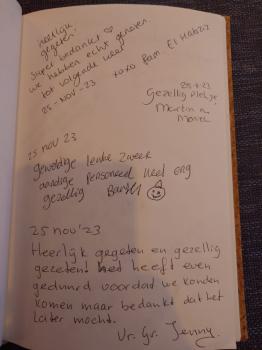 Heerlijk
gegeten.
Super bedankt ♡
we hebben echt genoten.
tot volgende keer
25-NOV-'23 xoxo Fam. El Habziz
25-11-23
Gezellig plekje
Martin
25 nov 23
geweldige leuke zweek
aardige personeel heel erg
gezellig
25 nov '23
Heerlijk gegeten en gezellig
gezeten! het heeft even
geduurd voordat we konden
komen maar bedankt dat het
later mocht.
Vr. Gr. Jenny.